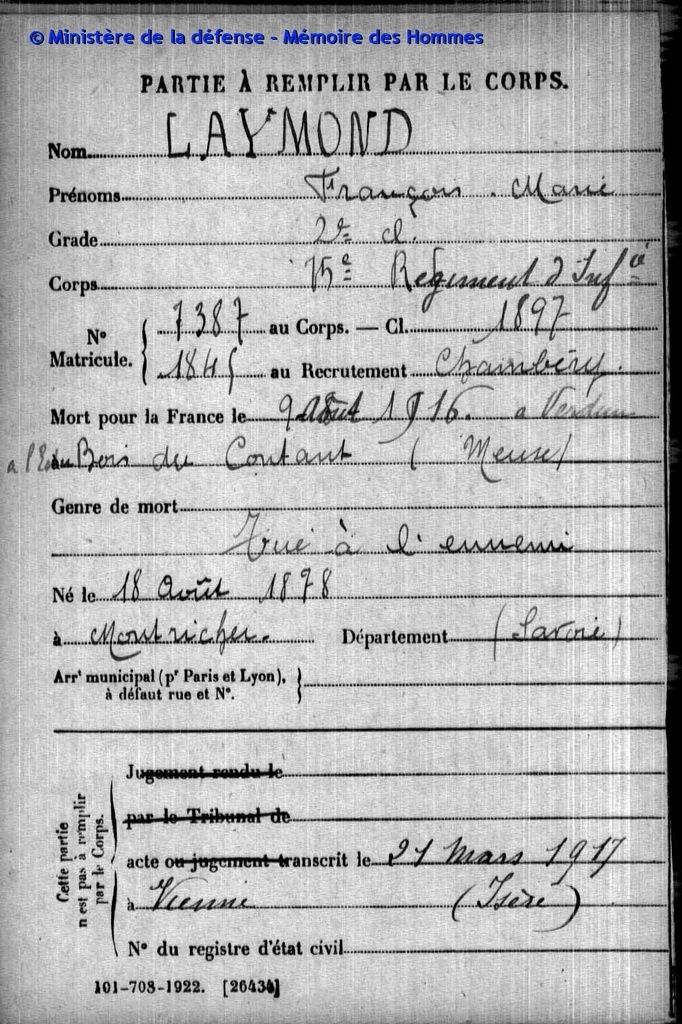 © Ministère de la défense - Mémoire des Hommes
PARTIE À REMPLIR PAR LE CORPS.
Nom LAYMOND
Prénoms François Marie
Grade 2e cl.
Corps 75e Régiment d'Infie
No Matricule. 7387 au Corps. — Cl. 1897
1845 au Recrutement Chambéry.
Mort pour la France le 9 août 1916. a Verdun
Bois du Contant (Meuse)
Genre de mort
Tué à l'ennemi
Né le 18 Août 1878
à Montricher. Département (Savoie)
Arrt municipal (pr Paris et Lyon),
à défaut rue et No.
Cette partie
n'est pas à remplir
par le Corps.
Jugement rendu le
par le Tribunal de
acte ou jugement transcrit le 21 Mars 1917
à Vienne (Isère)
No du registre d'état civil
101-708-1922. [26434]